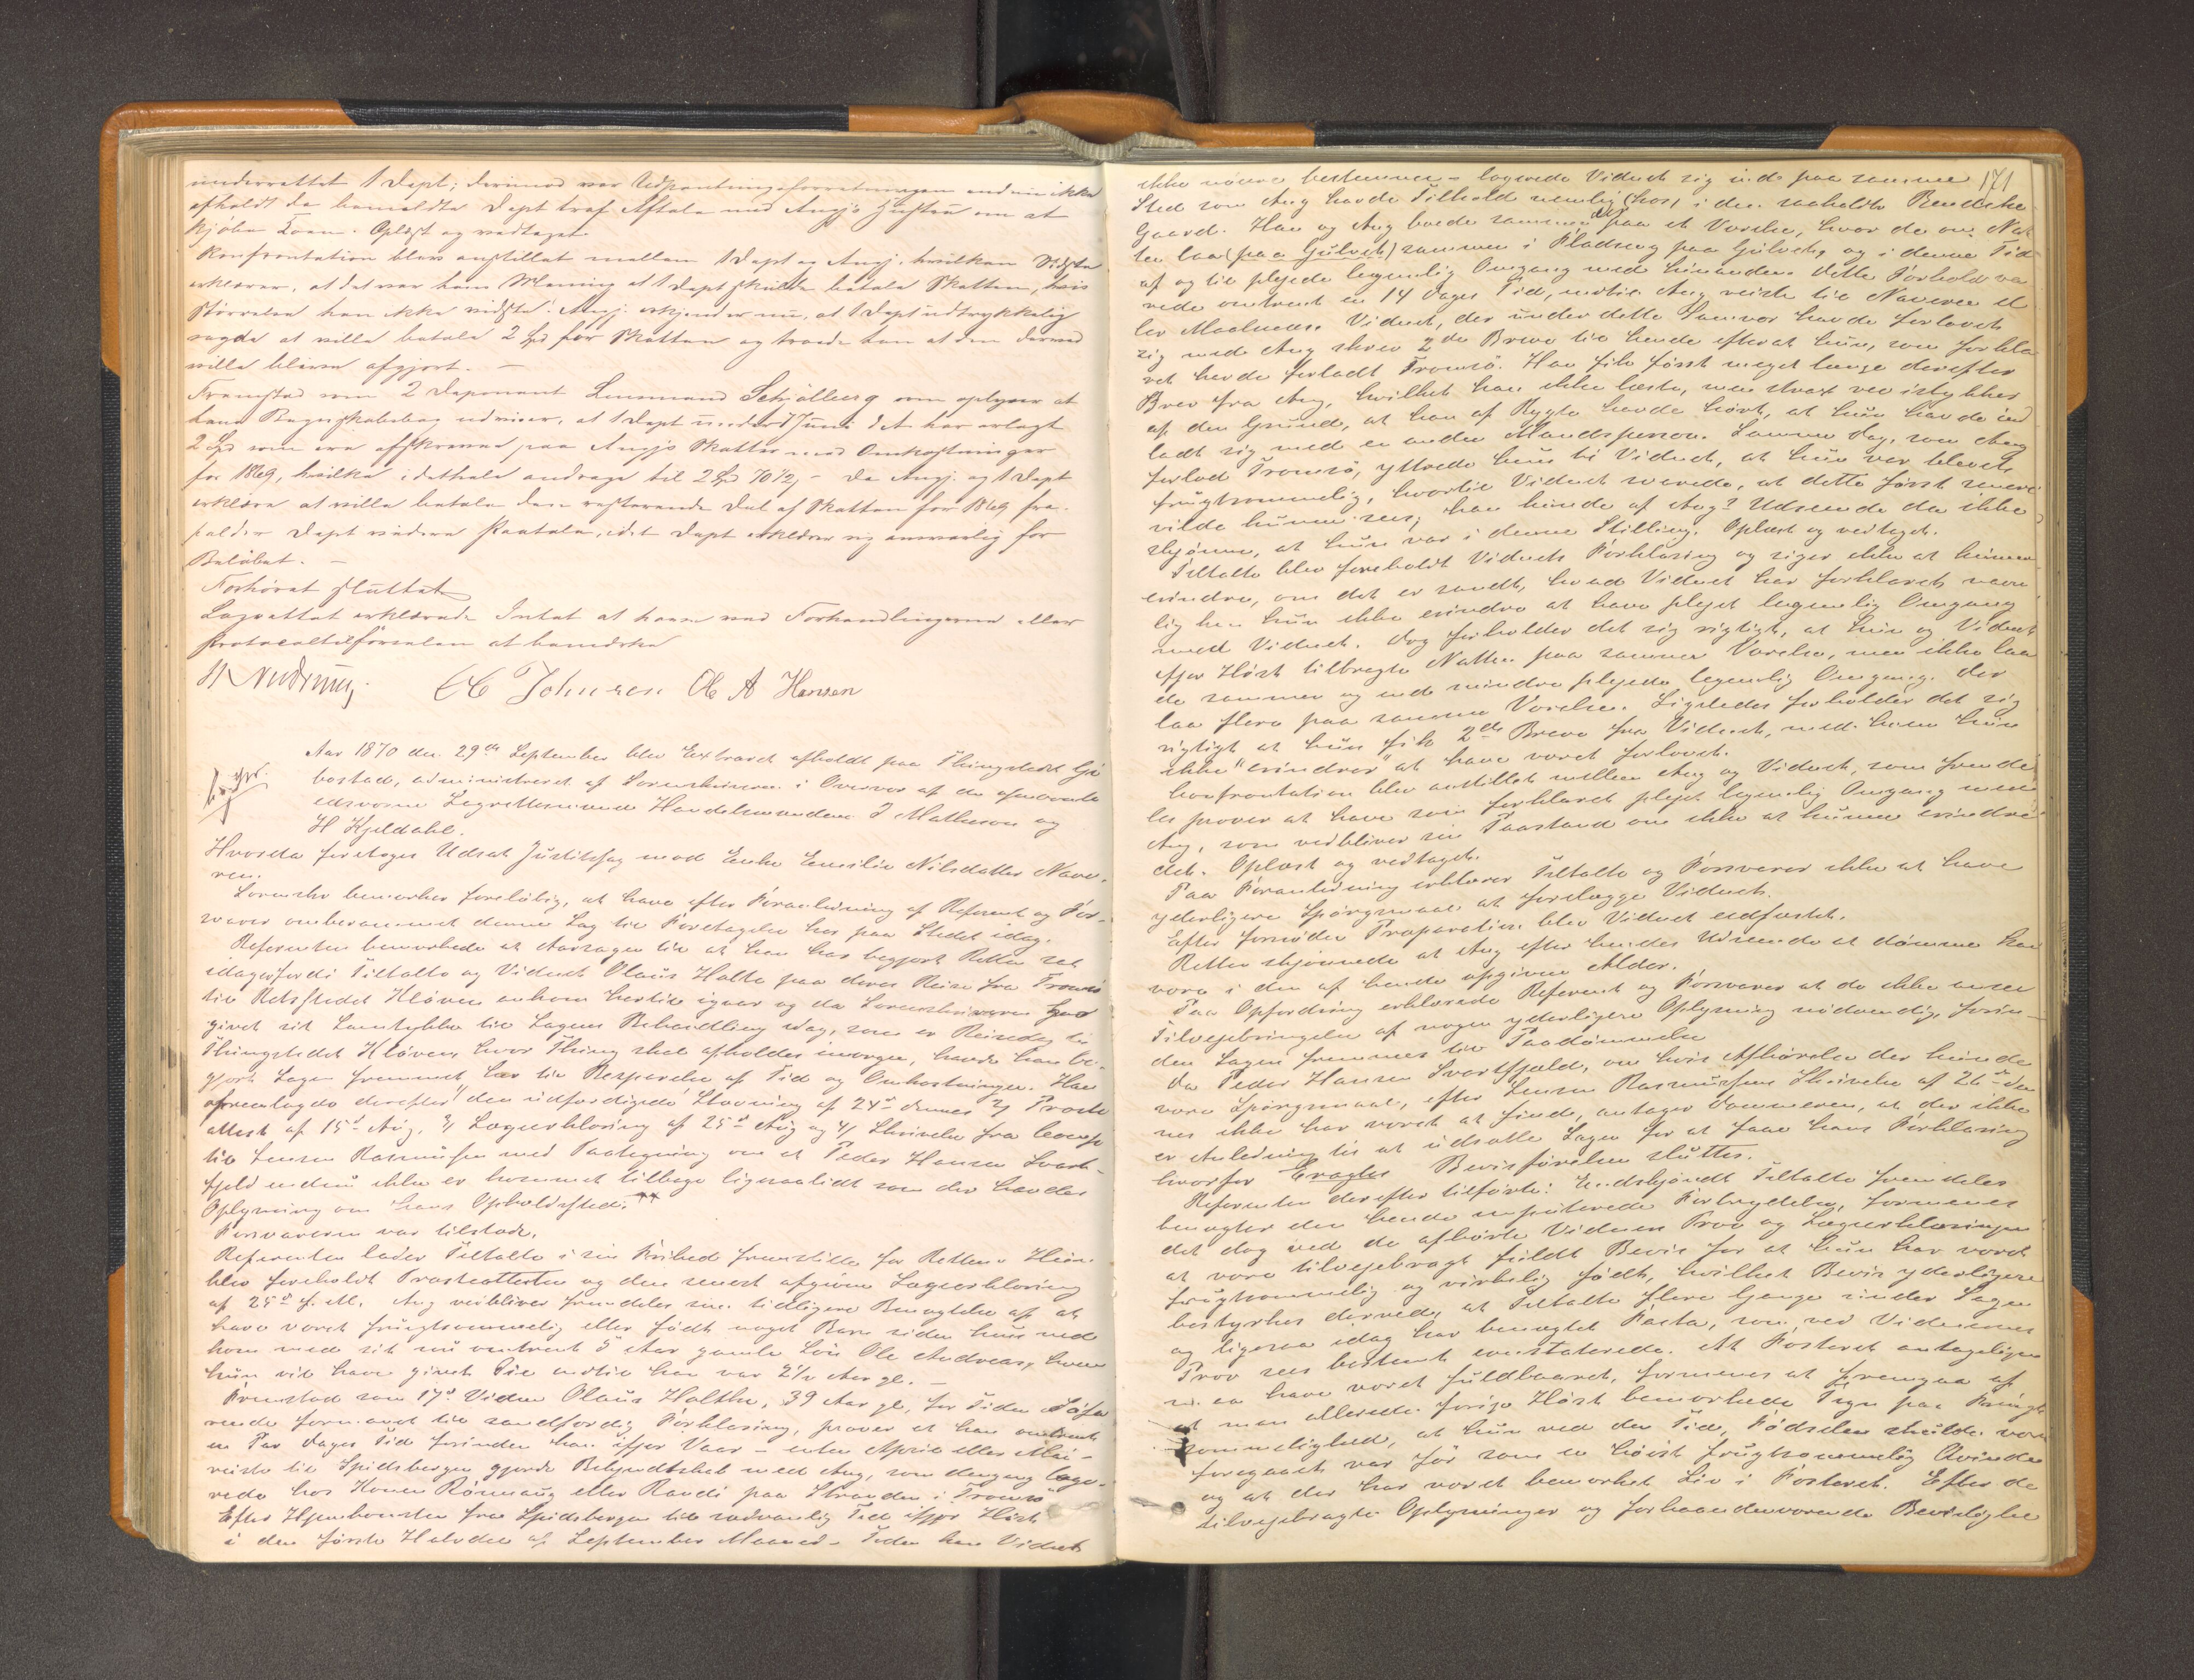 underrettet 1 Dept; derimod var Udpantningsforretningen endnu ikke
afholdt da bemeldte Dept traf Aftale med Angj's Hustru om at
kjøbe Koen. Oplæst og vedtaget.
Konfrontation blev anstillet mellem 1 Dept og Angj. hvilken Sidste
erklærer, at det var hans Mening at 1 Dept skulde betale Skatten, hvis
Størrelse han ikke vidste. Angj. erkjender nu, at 1 Dept udtrykkelig
sagde at ville betale 2 Spd for Skatten og troede han at den dermed
ville blive afgjort. —
Fremstod som 2 Deponent Lensmand Schjølberg som oplyser at
hans Regnskabsbog udviser, at 1 Dept under 17 Juni d A har erlagt
2 Spd som ere afskrevne paa Angjs Skatter med Omkostninger
for 1869, hvilke i dethele androge til 2 Spd 70 1/2 – Da Angj. og 1 Dept
erklære at ville betale den resterende Del af Skatten for 1869 fra-
falder Dept videre Paatale, idet Dept erklærer sig ansvarlig for
Beløbet. —
Forhøret sluttet
Lagrettet erklærede Intet at have ved Forhandlingerne eller
Protocoltilførselen at bemærke
Chr Johnsen Ole A Hansen
Aar 1870 den 29de September blev Extraret afholdt paa Thingstedet Gi-
bostad, administreret af Sorenskriveren i Overvær af de opnævnte
edsvorne Lagrettesmænd Handelsmændene J Matheson og
H Kjeldahl.
Hvorda foretoges Udsat Justitssag mod Enke Emilie Nilsdatter Nave-
ren.
Sorenskr bemærker foreløbig, at have efter Foranledning af Referent og For-
svarer omberammet denne Sag til Foretagelse her paa Stedet idag.
Referenten bemærkede at Aarsagen til at han har begjært Retten sat
idag er fordi Tiltalte og Vidnet Olaus Holte paa deres Reise fra Tromsø
til Retsstedet Kløven ankom hertil igaar og da Sorenskriveren har
givet sit Samtykke til Sagens Behandling idag, som er Reisedag til
Thingstedet Kløven, hvor Thing skal afholdes imorgen, havde han be-
gjært Sagen fremmet her til Besparelse af Tid og Omkostninger. Han
fremlagde derefter den udfærdigede Stævning af 24de dennes 2/ Præste
attest af 15de Aug. 3/ Lægeerklæring af 25de Aug og 4/ Skrivelse fra
til Lensm Rasmussen med Paategning om at Peder Hansen Svart-
fjeld endnu ikke er kommet tilbage ligesaalidt som der havdes
Oplysning om hans Opholdssted.
Forsvareren var tilstede.
Referenten lader Tiltalte i sin Frihed fremstille for Retten. Hun
blev foreholdt Præsteattesten og den senest afgivne Lægeerklæring
af 25de f. M. Ang vedbliver fremdeles sin tidligere Benægtelse af at
have været frugtsommelig eller født noget Barn siden hun ned-
kom med sit nu omtrent 5 Aar gamle Søn Ole Andreas, hvem
hun vil have givet Die indtil han var 2 1/2 Aar gl. —
Fremstod som 17de Vidne Olaus Holthe, 39 Aar gl, for Tiden Søfa-
rende formanet til sandfærdig Forklaring, prover at han omtrent
en Par Dages Tid forinden han ifjor Vaar – enten April eller Mai –
reiste til Spidsbergen gjorde Bekjendtskab med Ang, som dengang loge-
rede hos Konen Rønnaug eller Randi paa Stranden i Tromsø
Efter Hjemkomsten fra Spidsbergen til sædvanlig Tid ifjor Høst
i den første Halvdel af September Maaned – Tiden kan Vidnet
171
ikke nøiere bestemme – logerede Vidnet sig ind paa samme
Sted som Ang havde Tilhold nemlig (hos) i den saakaldte Bendiche-
Gaard. Han og Ang boede sammen paa et Værelse, hvor de om Nat-
ten laa (paa Gulvet) sammen i Fladseng paa Gulvet, og i denne Tid
af og til plejede legemlig Omgang med hinanden. Dette Forhold va-
rede omtrent en 14 Dages Tid, indtil Ang reiste til Naveren el-
ler Maalsnes. Vidnet, der under dette Samvær havde forlovet
sig med Ang skrev 2de Breve til hende efterat hun, som forkla-
ret havde forladt Tromsø. Han fik først meget længe derefter
Brev fra Ang, hvilket han ikke læste, men strax rev istykker
af den Grund, at han af Rygte havde hørt, at hun havde ind-
ladt sig med en anden Mandsperson. Samme Dag, som Ang
forlod Tromsø, yttrede hun til Vidnet, at hun var bleven
frugtsommelig, hvortil Vidnet svarede, at dette først senere
vilde kunne sees; han kunde af Ang's Udseende da ikke
skjønne, at hun var i denne Stilling. Oplæst og vedtaget.
Tiltalte blev foreholdt Vidnets Forklaring og siger ikke at kunne
erindre, om det er sandt, hvad Vidnet har forklaret nem-
lig kan hun ikke erindre at have plejet legemlig Omgang
med Vidnet. Dog forholder det sig rigtigt, at hun og Vidnet
ifjor Høst tilbragte Natten paa samme Værelse, men ikke laa
de sammen og end mindre plejede legemlig Omgang. Der
laa flere paa samme Værelse. Ligeledes forholder det sig
rigtigt at hun fik 2de Breve fra Vidnet, med hvem hun
ikke "erindrer" at have været forlovet.
Confrontation blev anstillet mellem Ang og Vidnet, som fremde-
les prover at have som forklaret plejet legemlig Omgang med
Ang, som vedbliver sin Paastand om ikke at kunne erindre
det. Oplæst og vedtaget.
Paa Foranledning erklærer Tiltalte og Forsvarer ikke at have
yderligere Spørgsmaal at forelægge Vidnet.
Efter fornøden Præparation blev Vidnet eedfæstet.
Retten skjønnede at Ang efter hendes Udseende at dømme kan
være i den af hende opgivne Alder.
Paa Opfordring erklærede Referent og Forsvarer at de ikke anser
Tilvejebringelse af nogen yderligere Oplysning nødvendig, forin-
den Sagen fremmes til Paadømmelse
Da Peder Hansen Svartfjeld, om hvis Afhørelse der kunde
være Spørgsmaal, efter Lensm Rasmussens Skrivelse af 26de den-
nes ikke har været at finde, antager Dommeren, at der ikke
er Anledning til at udsætte Sagen for at faae hans Forklaring
hvorfor Eragtes Bevisførelsen sluttes.
Referenten derefter tilførte: Endskjøndt Tiltalte fremdeles
benægter den hende imputerede Forbrydelse, formenes
det dog ved de afhørte Vidners Prov og Lægeerklæringen
at være tilvejebragt fuldt Bevis for at hun har været
frugtsommelig og virkelig født, hvilket Bevis yderligere
bestyrkes derved, at Tiltalte flere Gange under Sagen
og ligesaa idag har benægtet Facta, som ved Vidnernes
Prov sees bestemt constaterede. At Fosteret antageligen
maa have været fuldbaaret, formenes at fremgaa af
at man allerede forige Høst bemærkede Tegn paa Frugt-
sommelighed, at hun ved den Tid, Fødselen skulde være
foregaaet var før som en høist frugtsommelig Qvinde
og at der har været bemærket Liv i Fosteret. Efter de
tilvejebragte Oplysninger og forhaandenværende Beviseligheder